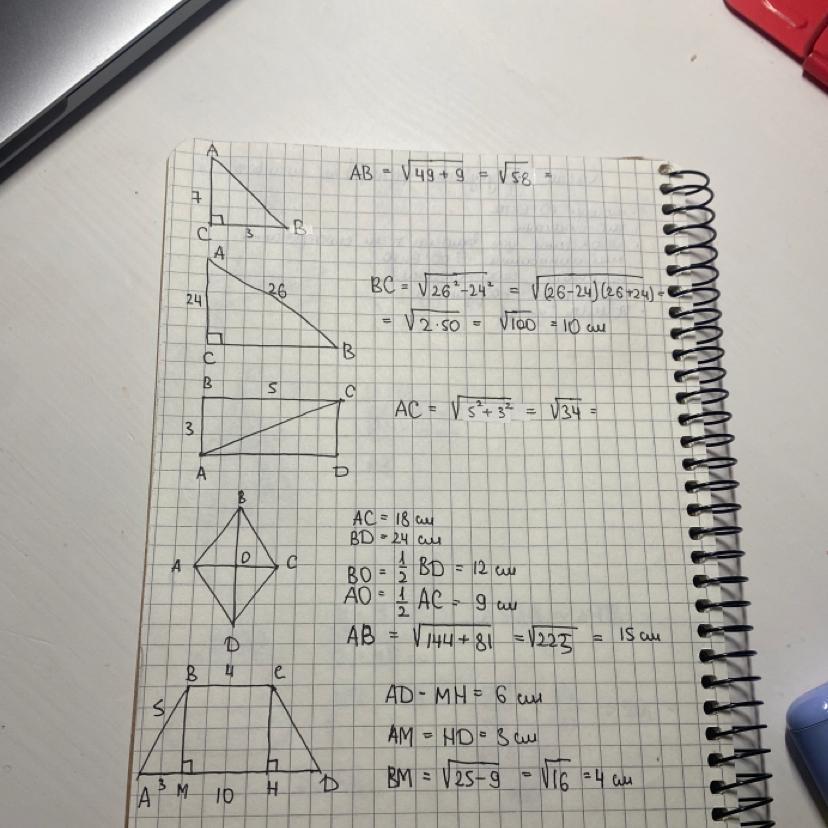 A
7
C 3 B
AB = √49 + 9 = √58 =
A
24 26
C B
BC = √26² - 24² = √(26-24)(26+24) =
= √2·50 = √100 = 10 см
B 5 C
3
A D
AC = √5² + 3² = √34 =
B
A O C
D
AC = 18 см
BD = 24 см
BO = 1/2 BD = 12 см
AO = 1/2 AC = 9 см
AB = √144 + 81 = √225 = 15 см
B 4 C
5
A 3 M 10 H D
AD - MH = 6 см
AM = HD = 3 см
BM = √25 - 9 = √16 = 4 см